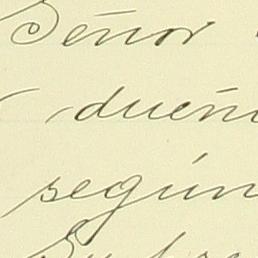 Señor
dueñ
según